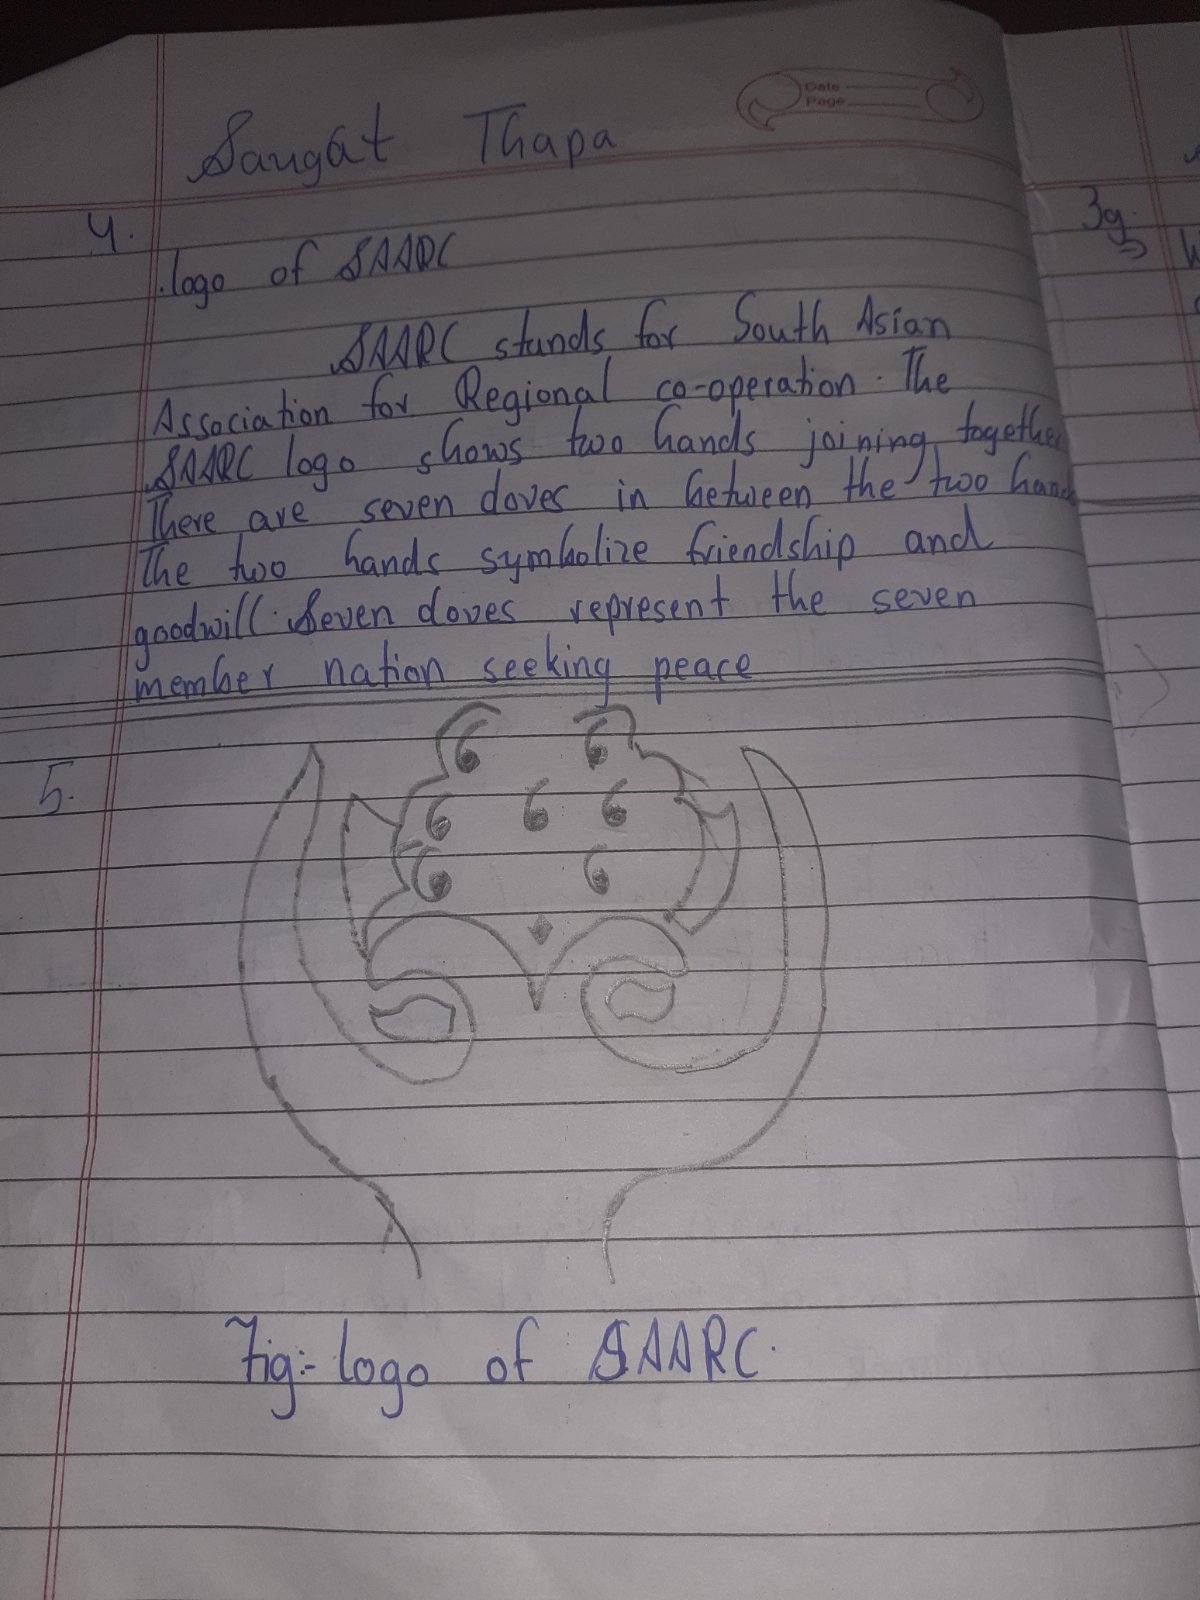 Date
Page
Saugat Thapa
4.
logo of SAARC
SAARC stands for South Asian
Association for Regional co-operation. The
SAARC logo shows two hands joining together
There are seven doves in between the two hands
The two hands symbolize friendship and
goodwill. Seven doves represent the seven
member nation seeking peace
5.
Fig:- logo of SAARC.
3g.